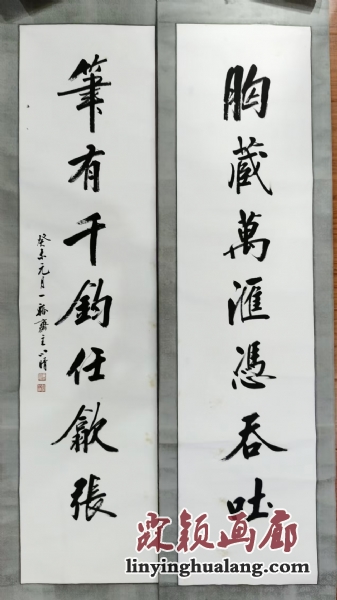 胸藏萬滙憑吞吐
筆有千鈞任歙張
癸未元月一
霖颖画廊
linyinghualang.com